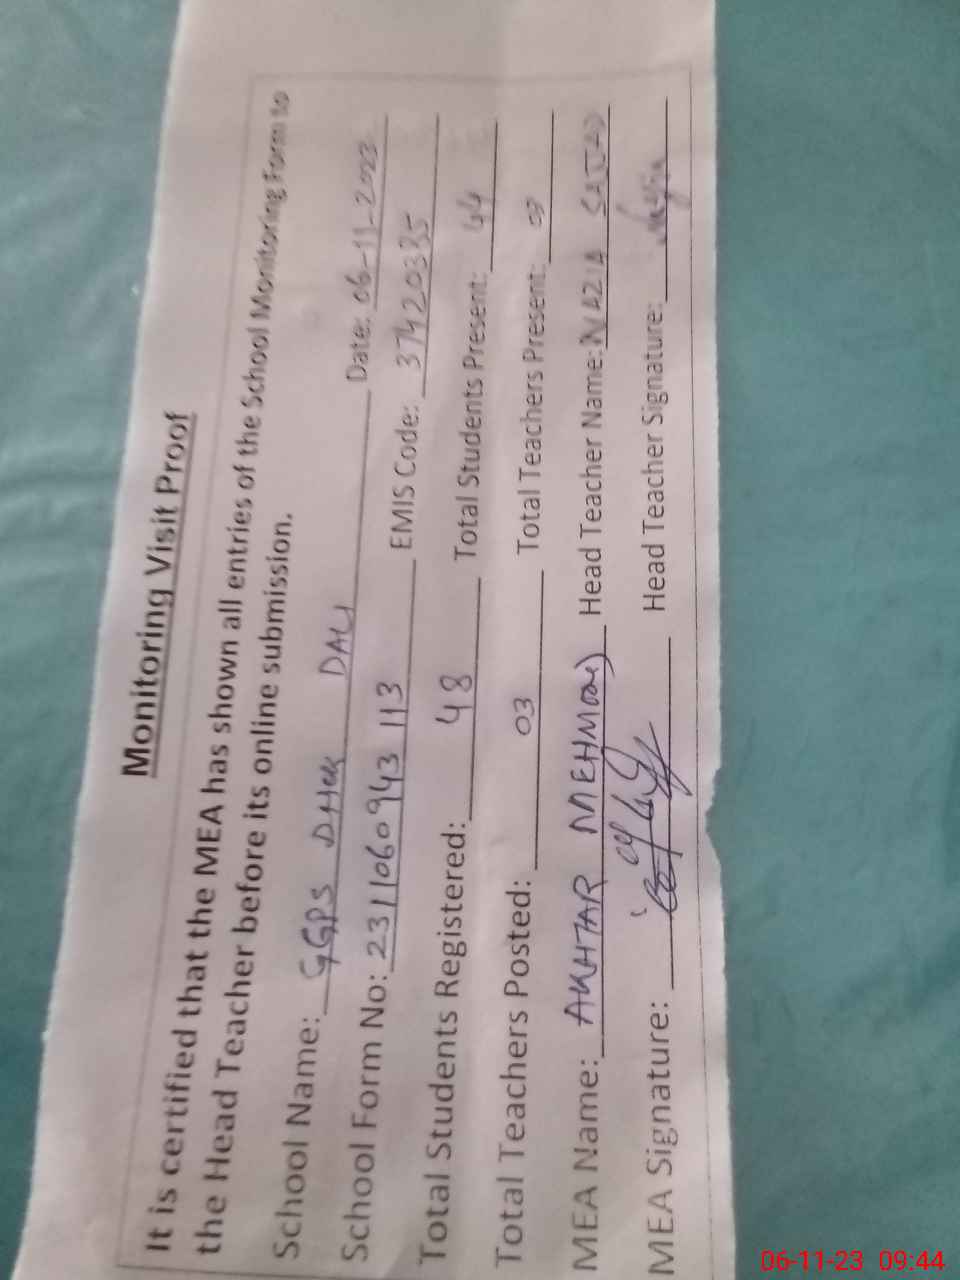 Monitoring Visit Proof
It is certified that the MEA has shown all entries of the School Monitoring Form to
the Head Teacher before its online submission.
School Name: GGPS DHOK DALI Date: 06-11-2023
School Form No: 2311060943 113 EMIS Code: 37420335
Total Students Registered: 48 Total Students Present: 44
Total Teachers Posted: 03 Total Teachers Present: 03
MEA Name: AKHTAR MEHMOOD Head Teacher Name: NAZIA SAJJAD
MEA Signature: Head Teacher Signature: Nazia
06-11-23 09:44